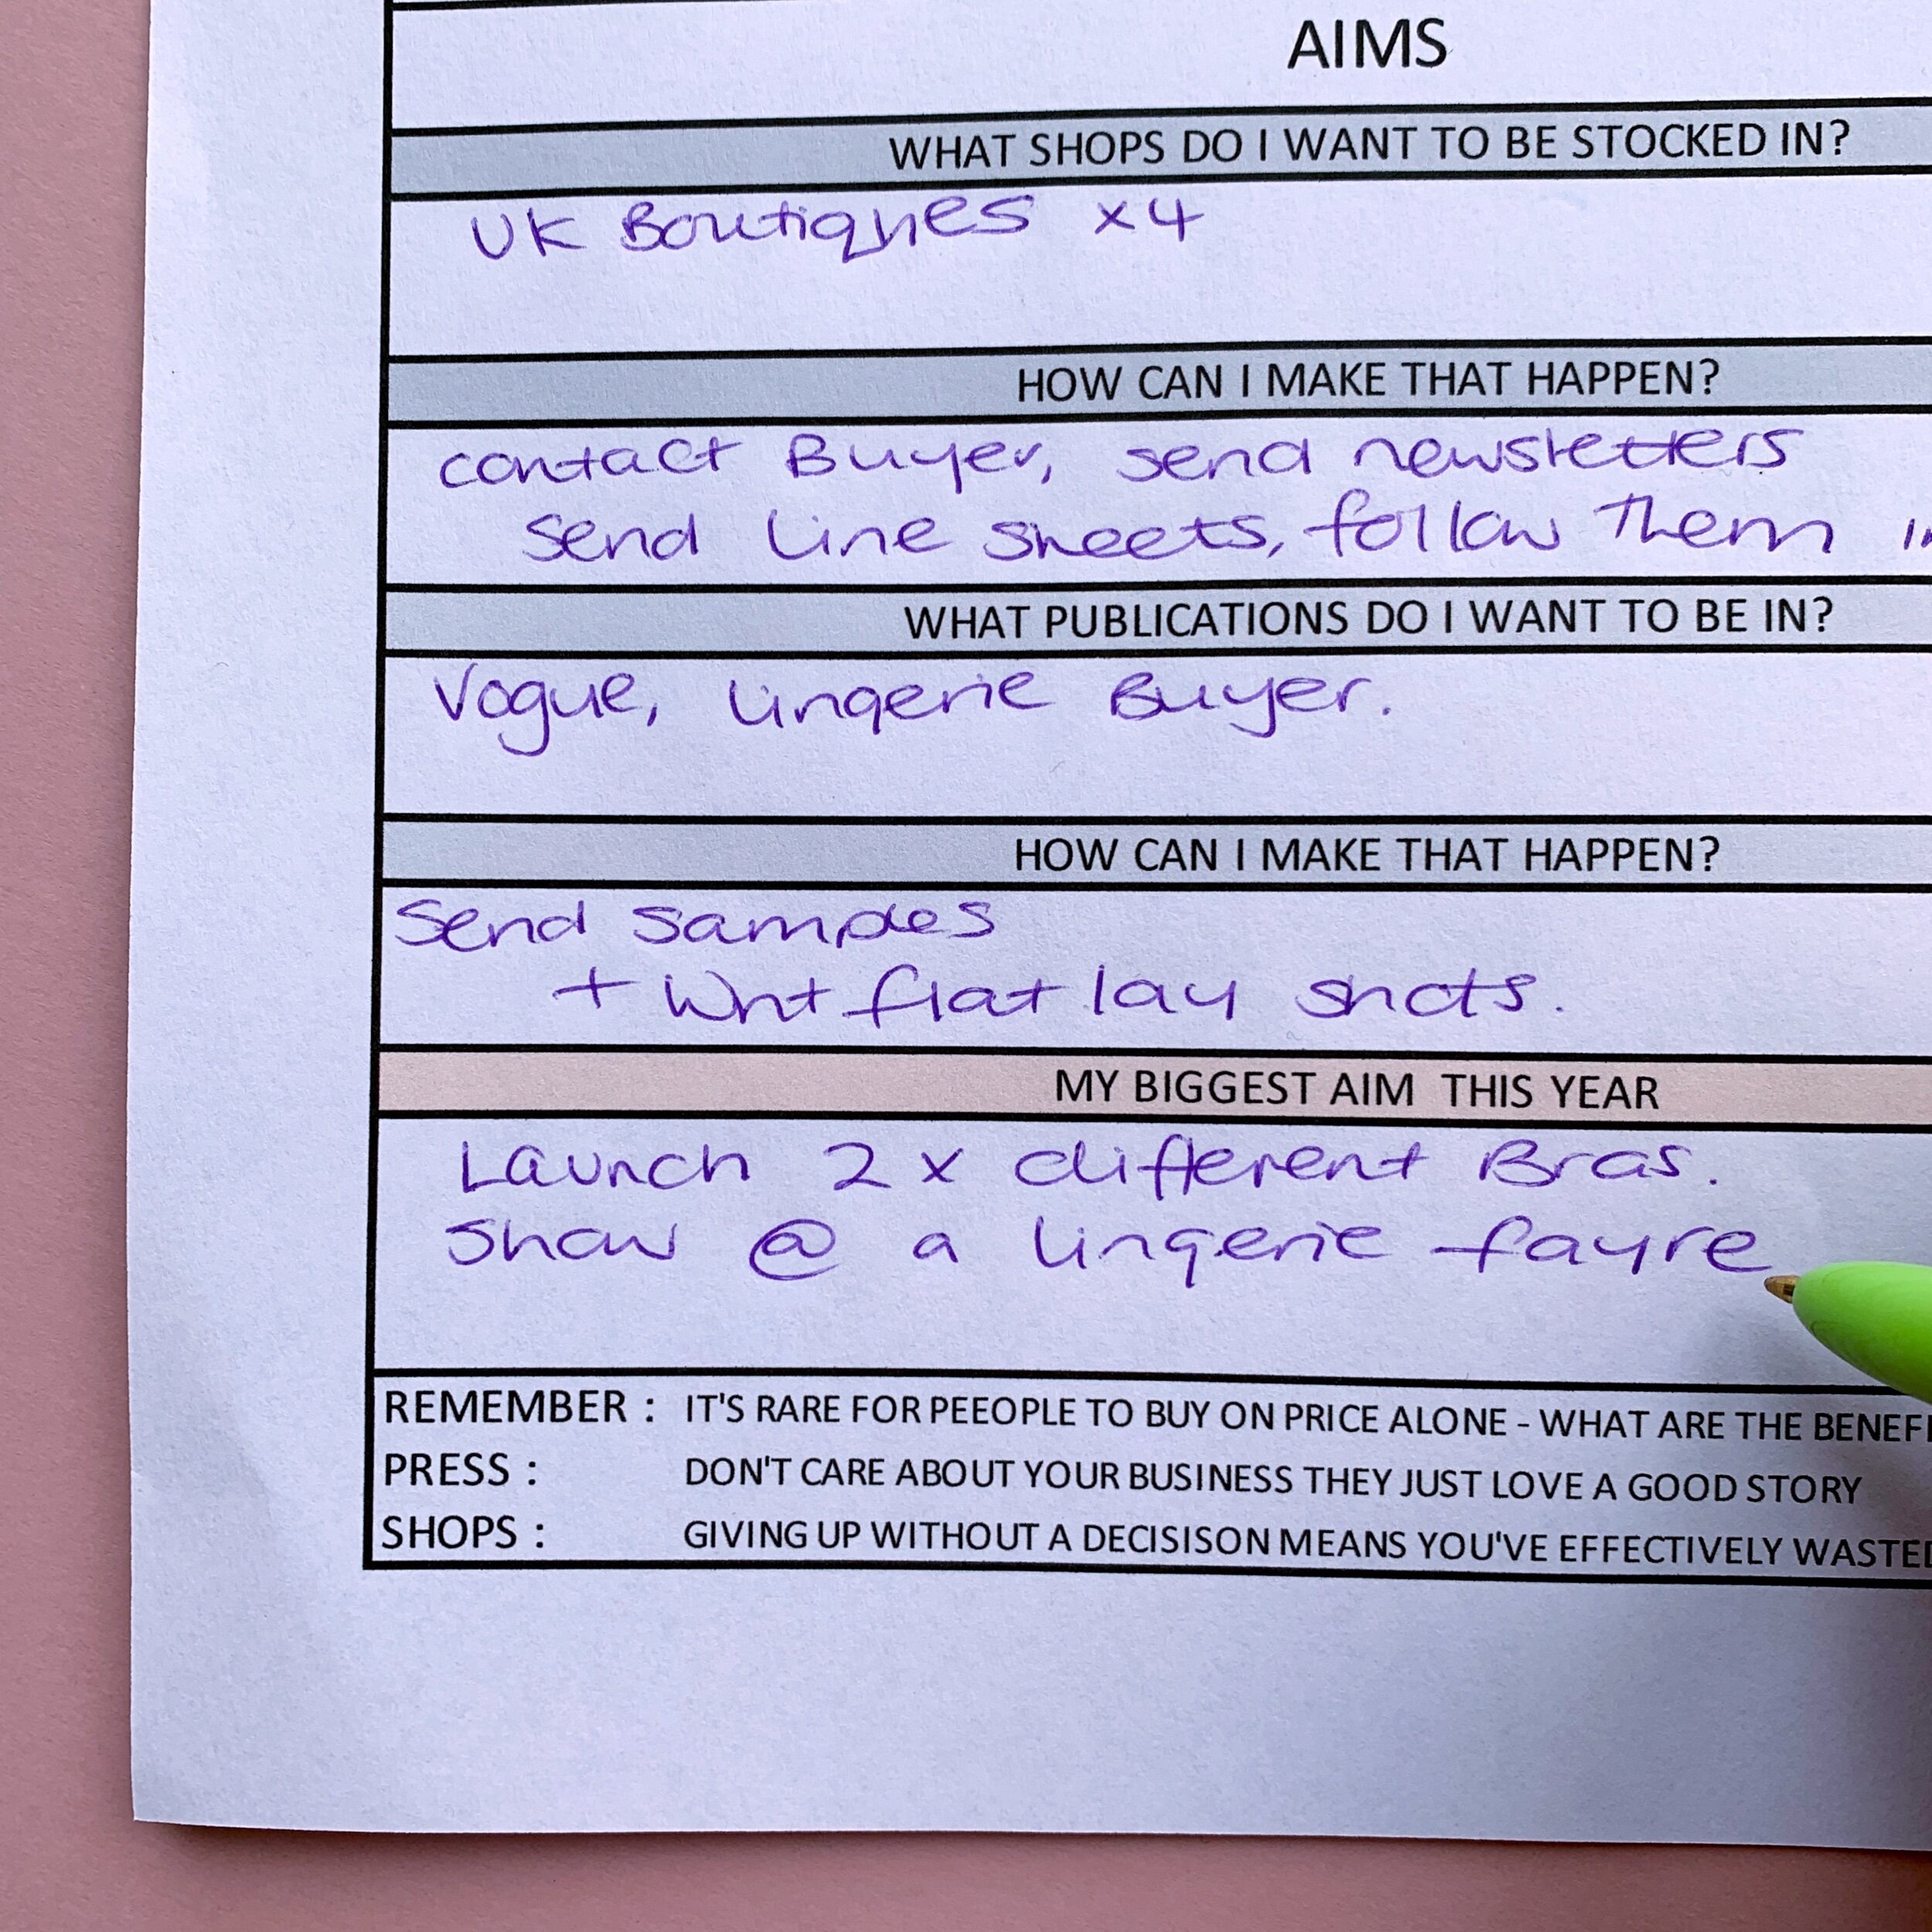 AIMS
WHAT SHOPS DO I WANT TO BE STOCKED IN?
UK Boutiques x4
HOW CAN I MAKE THAT HAPPEN?
contact Buyer, send newsletters
send line sheets, follow them
WHAT PUBLICATIONS DO I WANT TO BE IN?
Vogue, lingerie Buyer.
HOW CAN I MAKE THAT HAPPEN?
Send samples
+ flat lay shots.
MY BIGGEST AIM THIS YEAR
Launch 2 x different Bras.
Show @ a lingerie fayre
REMEMBER : IT'S RARE FOR PEEOPLE TO BUY ON PRICE ALONE - WHAT ARE THE
PRESS : DON'T CARE ABOUT YOUR BUSINESS THEY JUST LOVE A GOOD STORY
SHOPS : GIVING UP WITHOUT A DECISISON MEANS YOU'VE EFFECTIVELY WASTED